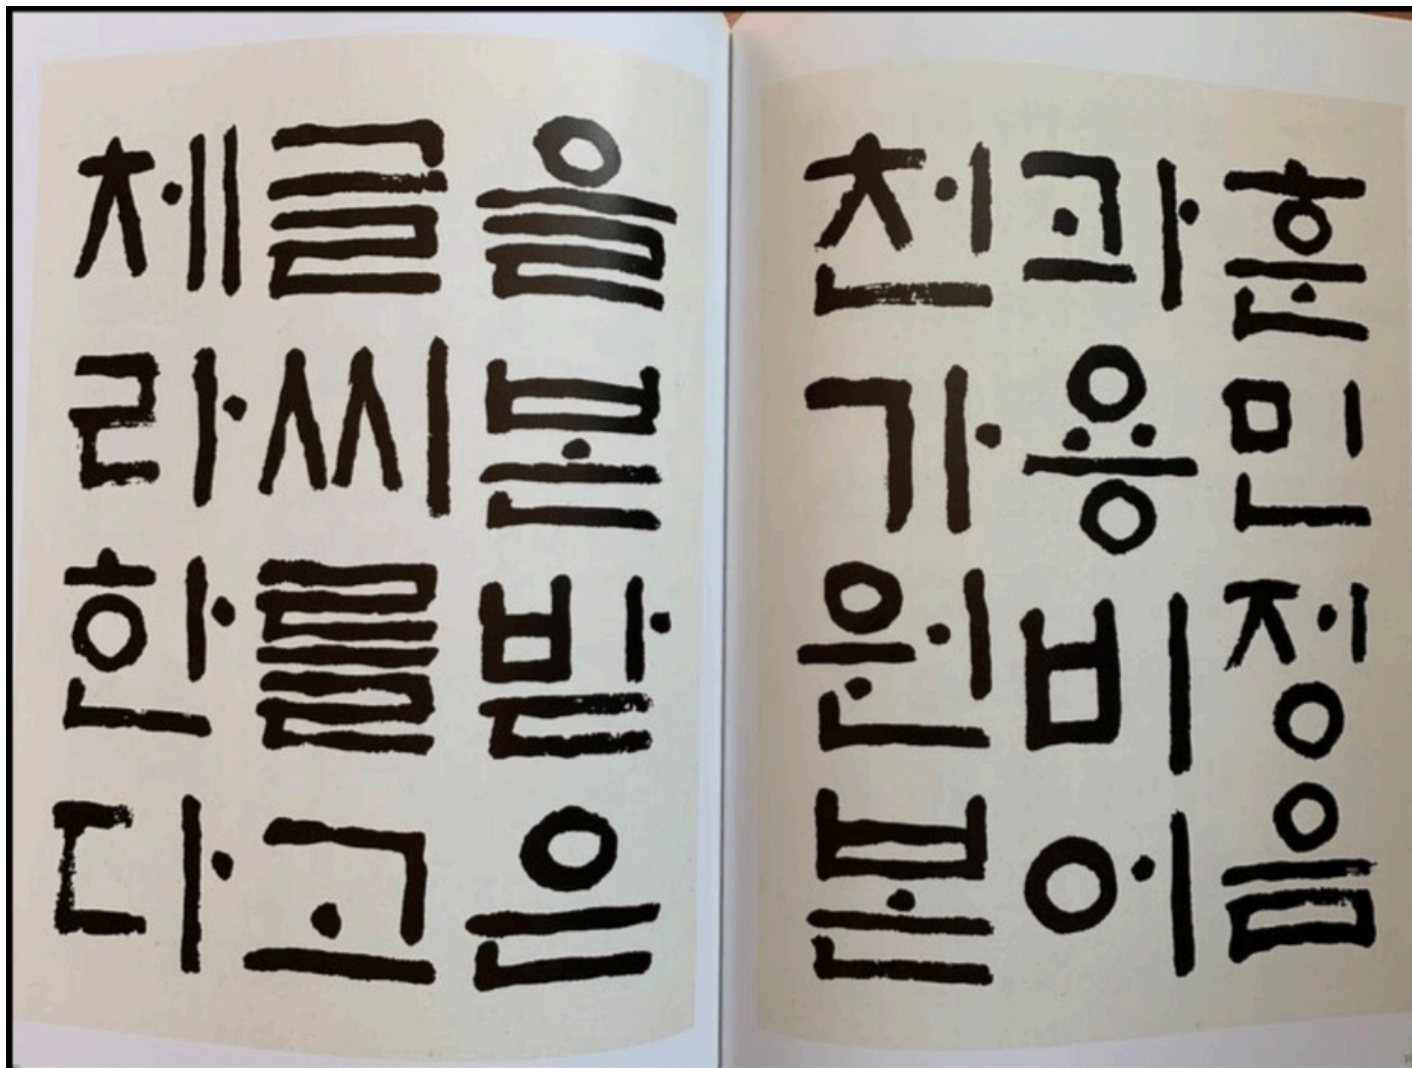 훈민정음
과용비어
천가원본
을본받은
글씨를고
체라한다